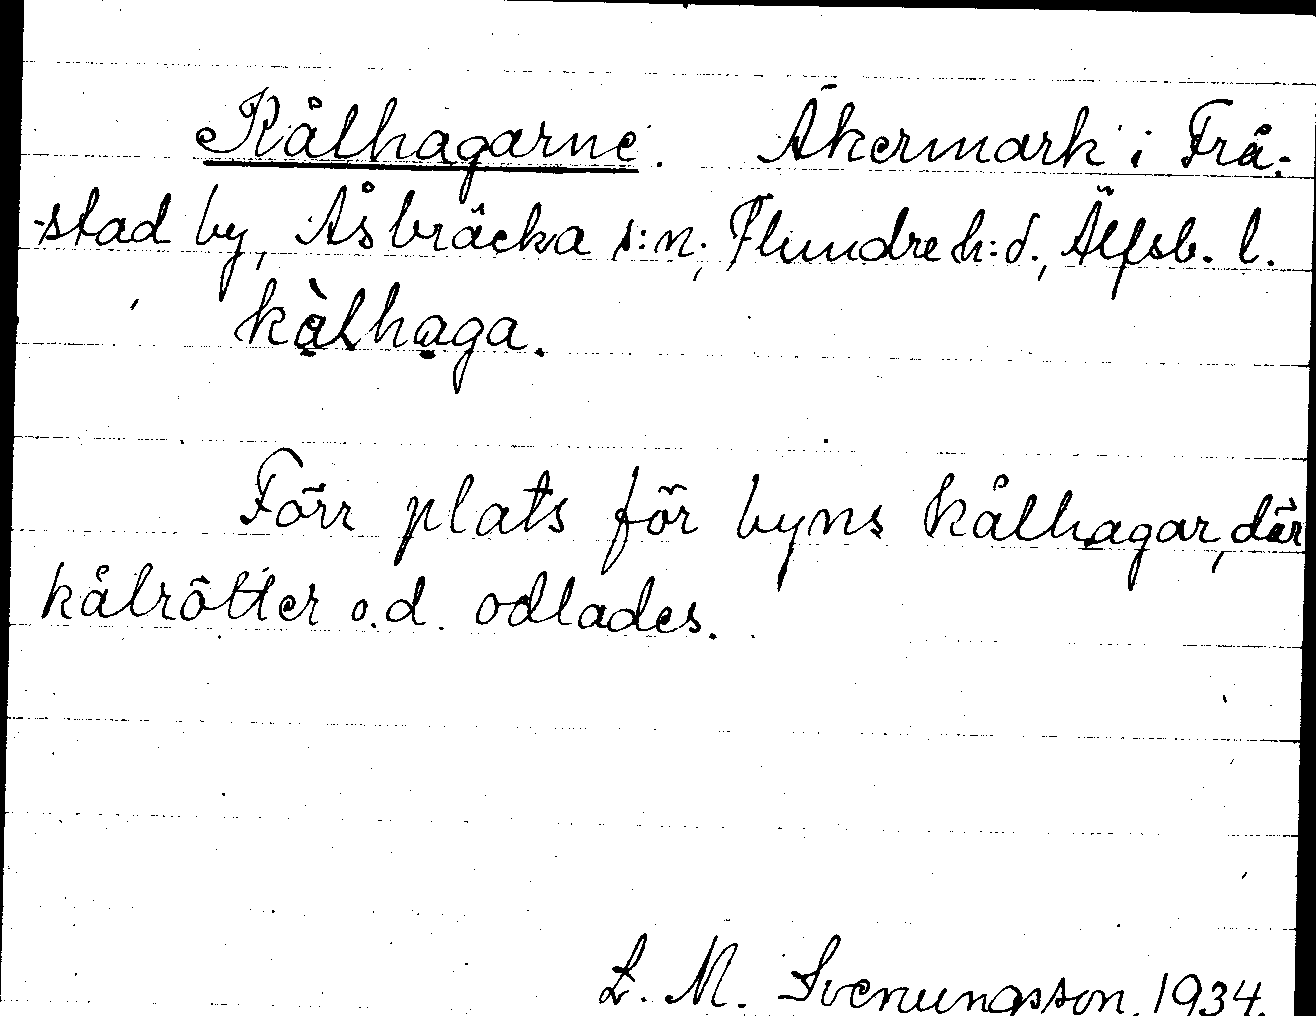 Kålhagarne. Åkermark i Frå-
stad by, Åsbräcka s:n, Flundre h:d., Älfsb. l.
kàlhaga.
Förr plats för byns kålhagar, där
kålrötter o.d. odlades.
L. M. Svenungsson. 1934.